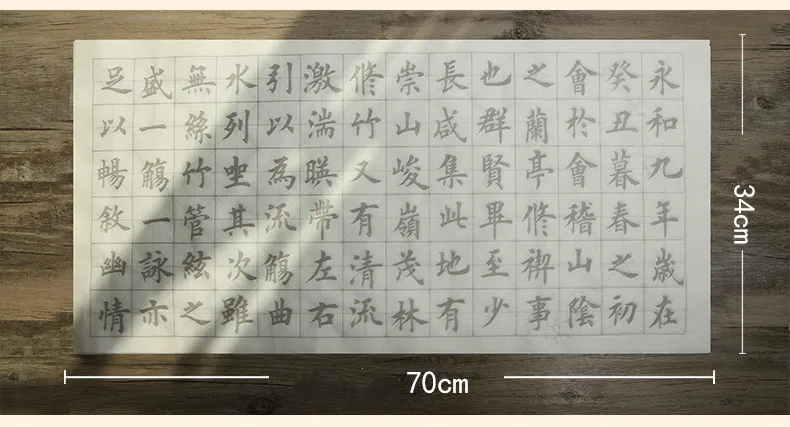 永和九年歲在
癸丑暮春之初
會於會稽山陰
之蘭亭脩禊事
也群賢畢至少
長咸集此地有
崇山峻嶺茂林
脩竹又有清流
激湍暎帶左右
引以為流觴曲
水列坐其次雖
無絲竹管絃之
盛一觴一詠亦
足以暢敘幽情
34cm
70cm